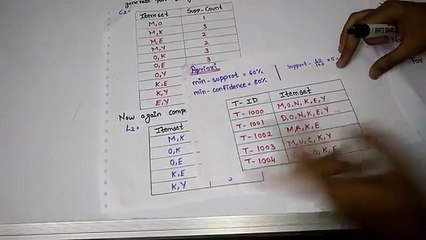 generate
C₂= Itemset Supp-Count
M,O 1
M,K 3
M,E 2
M,Y 2
O,K 3
O,E 3
O,Y
K,E
K,Y
E,Y
Apriori
min-support = 60%
min-confidence = 80%
support
T-ID Itemset
T-1000 M,O,N,K,E,Y
T-1001 D,O,N,K,E,Y
T-1002 M,A,K,E
T-1003 M,U,C,K,Y
T-1004 K,E
Now again comp
L₂= Itemset
M,K
O,K
O,E
K,E
K,Y